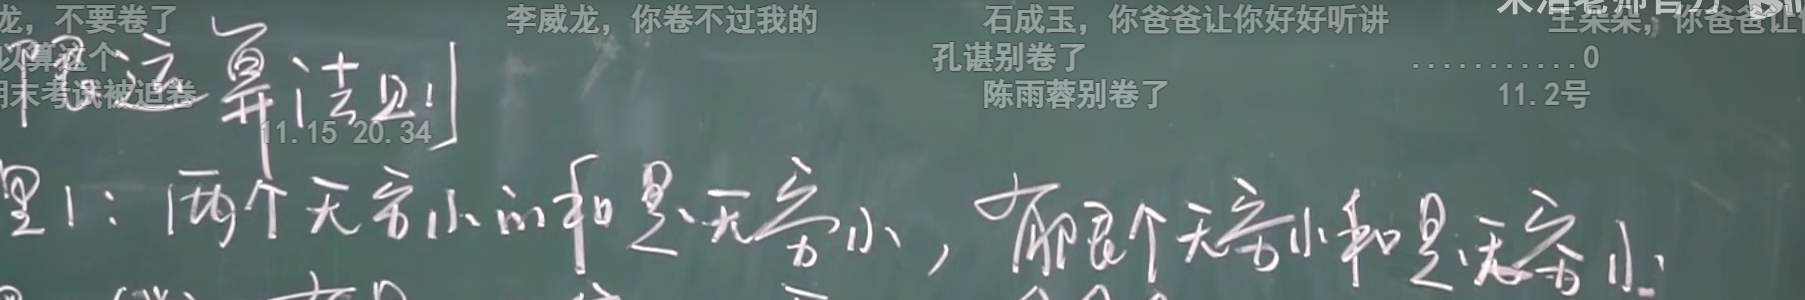 龙，不要卷了 李威龙，你卷不过我的 石成玉，你爸爸让你好好听讲 王朵朵，你爸爸让
以算这个 孔谌别卷了 ............0
期末考试被迫卷 陈雨蓉别卷了 11.2号
限运算法则
11.15 20.34
理1：两个无穷小的和是无穷小，有限个无穷小和是无穷小.